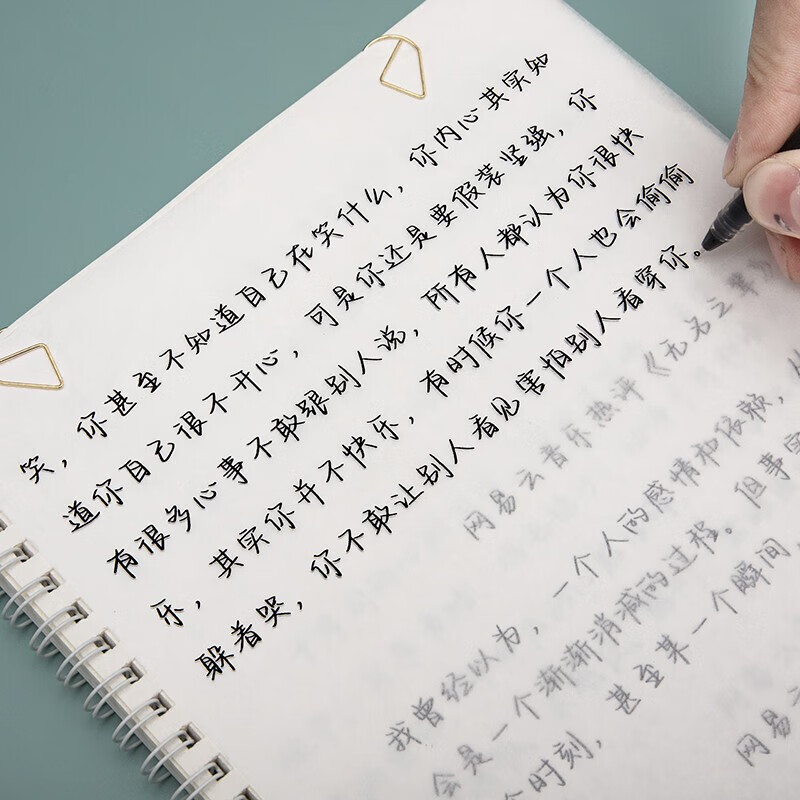 笑，你甚至不知道自己在笑什么，你内心其实知
道你自己很不开心，可是你还是要假装坚强，你
有很多心事不敢跟别人说，所有人都认为你很快
乐，其实你并不快乐，有时候你一个人也会偷偷
躲着哭，你不敢让别人看见害怕别人看穿你。
网易云音乐热评《无名之辈》
我曾经以为，一个人的感情和依赖，从
会是一个渐渐消减的过程。但事实
个时刻，甚至某一个瞬间，
网易云